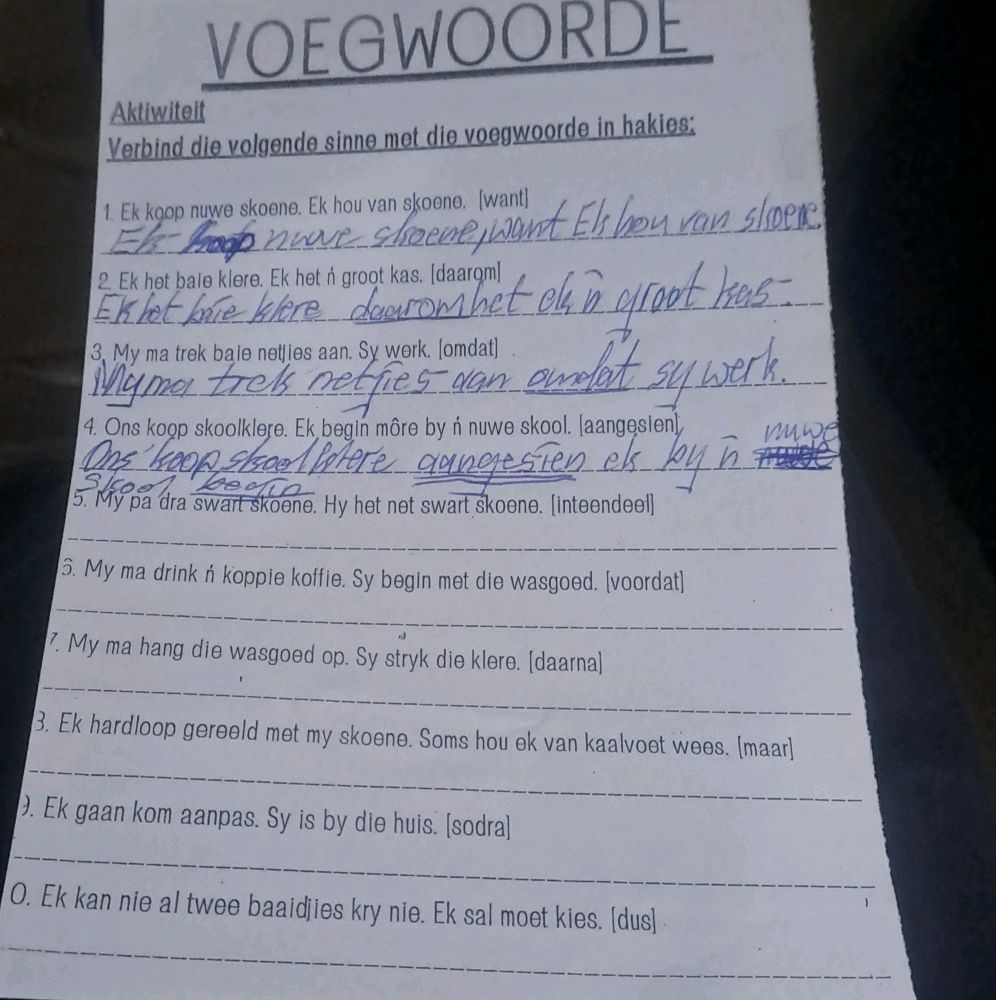 VOEGWOORDE
Aktiwiteit
Verbind die volgende sinne met die voegwoorde in hakies:
1. Ek koop nuwe skoene. Ek hou van skoene. [want]
Ek koop nuwe skoene, want Ek hou van skoene
2. Ek het baie klere. Ek het ń groot kas. [daarom]
Ek het baie klere daarom het ek ń groot kas.
3. My ma trek baie netjies aan. Sy werk. [omdat]
My ma trek netjies aan omdat sy werk.
4. Ons koop skoolklere. Ek begin môre by ń nuwe skool. [aangesien]
nuwe
Ons koop skoolklere aangesien ek by ń
skool begin
5. My pa dra swart skoene. Hy het net swart skoene. [inteendeel]
6. My ma drink ń koppie koffie. Sy begin met die wasgoed. [voordat]
7. My ma hang die wasgoed op. Sy stryk die klere. [daarna]
8. Ek hardloop gereeld met my skoene. Soms hou ek van kaalvoet wees. [maar]
9. Ek gaan kom aanpas. Sy is by die huis. [sodra]
0. Ek kan nie al twee baaidjies kry nie. Ek sal moet kies. [dus]